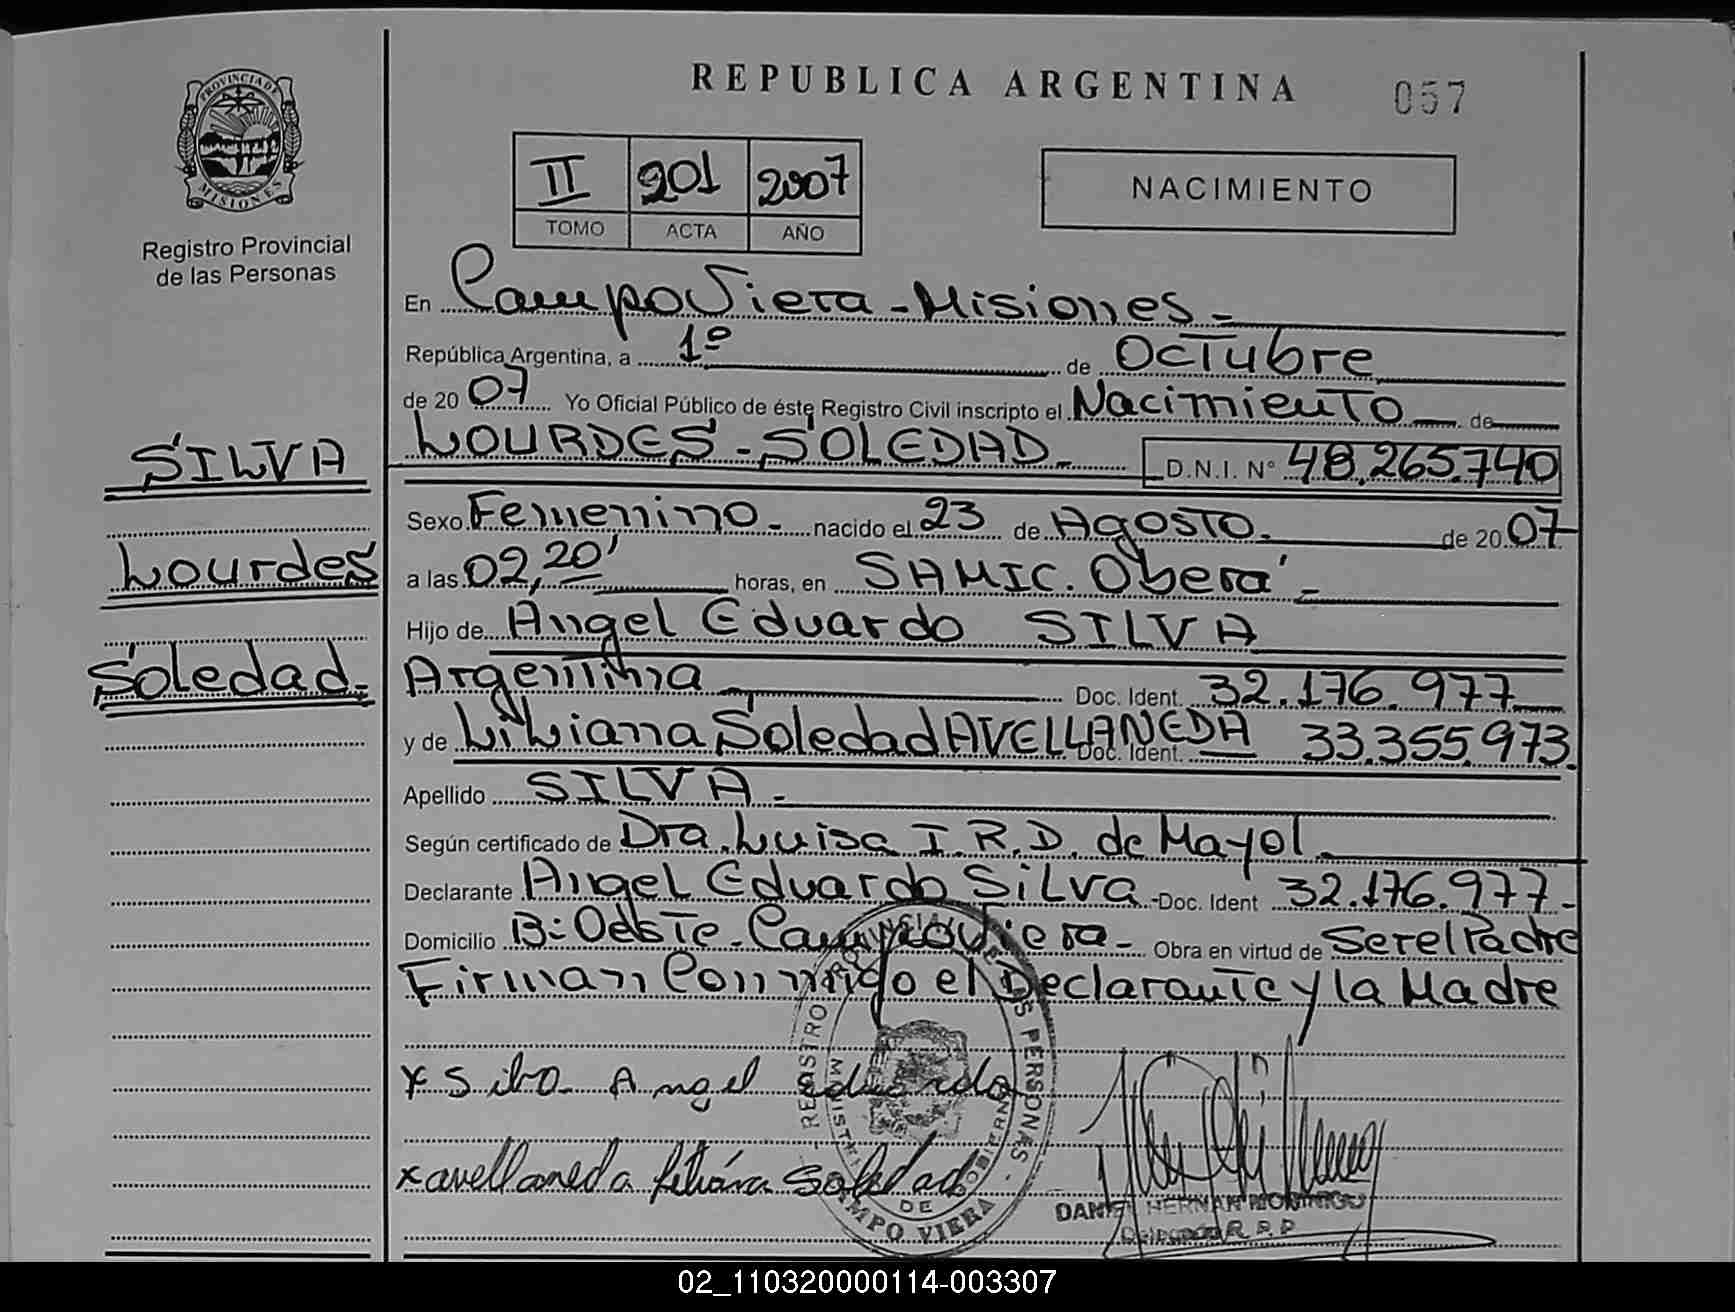 REPUBLICA ARGENTINA
057
PROVINCIA DE
MISIONES
Registro Provincial
de las Personas
II 201 2007
TOMO ACTA AÑO
NACIMIENTO
En Campo Viera - Misiones -
República Argentina, a 1º de Octubre
de 2007 Yo Oficial Público de éste Registro Civil inscripto el Nacimiento de
LOURDES - SOLEDAD D.N.I. Nº 48.265.740
SILVA
Lourdes
Soledad
Sexo Femenino - nacido el 23 de Agosto de 2007
a las 02,20' horas, en SAMIC. Oberá -
Hijo de Angel Eduardo SILVA
Argentina Doc. Ident. 32.176.977
y de Liliana Soledad AVELLANEDA Doc. Ident. 33.355.973.
Apellido SILVA -
Según certificado de Dra. Luisa I.R.D. de Mayol
Declarante Angel Eduardo Silva - Doc. Ident 32.176.977-
Domicilio B: Oeste - Campo Viera - Obra en virtud de Ser el Padre
Firman Conmigo el Declarante y la Madre
x Silva Angel eduardo
x avellaneda liliána Soledad
REGISTRO PROVINCIAL DE LAS PERSONAS
DE
CAMPO VIERA
HERNAN
R. P. P.
02_110320000114-003307